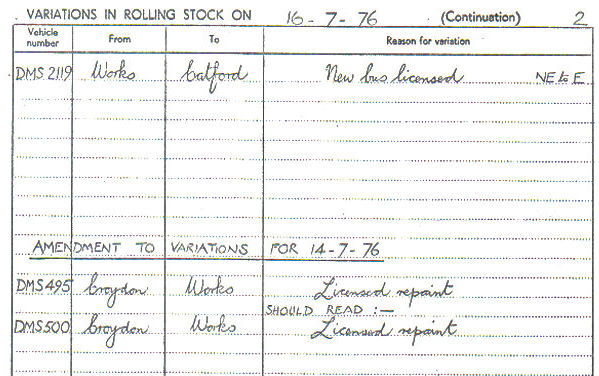 VARIATIONS IN ROLLING STOCK ON 16-7-76 (Continuation) 2
Vehicle number From To Reason for variation
DMS 2119 Works Catford New bus licensed NE to E
AMENDMENT TO VARIATIONS FOR 14-7-76
DMS495 Croydon Works Licensed repaint
SHOULD READ :—
DMS500 Croydon Works Licensed repaint